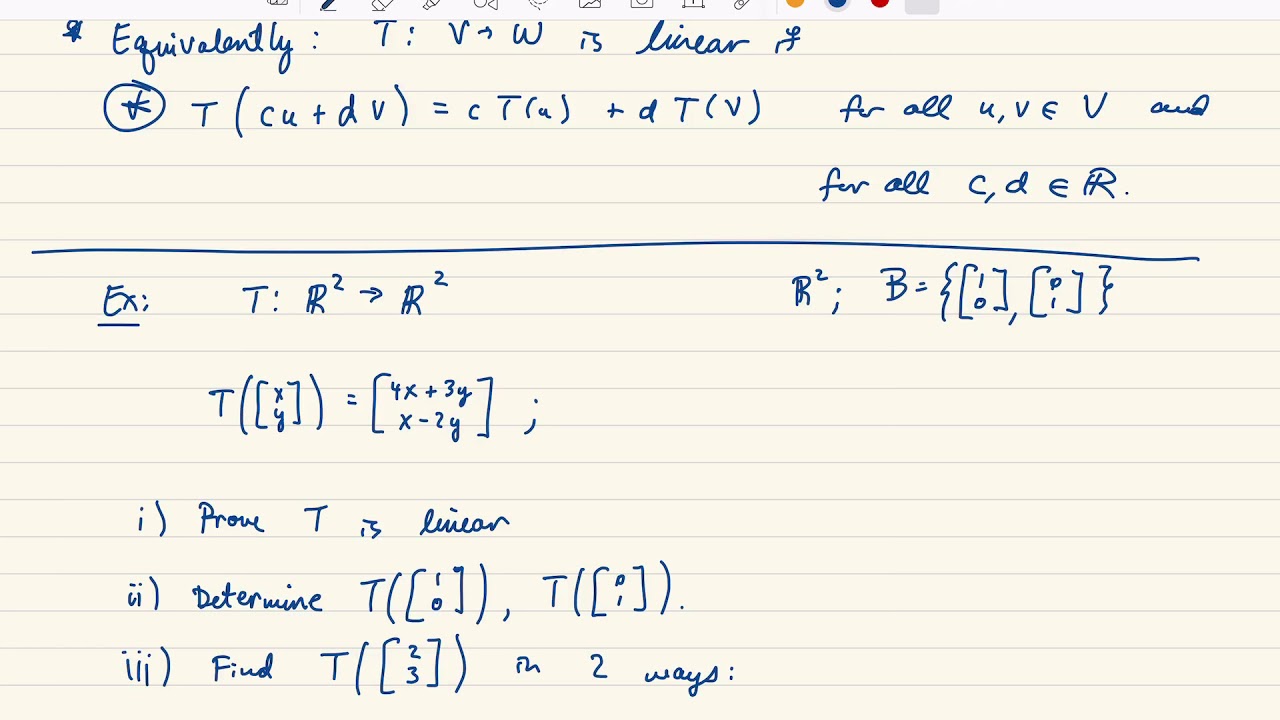 * Equivalently: T: V → W is linear if
* T(cu + dv) = cT(u) + dT(v) for all u, v ∈ V and
for all c, d ∈ ℝ.
Ex: T: ℝ² → ℝ² ℝ²; B = {[1 0], [0 1]}
T([x y]) = [4x + 3y x - 2y];
i) Prove T is linear
ii) Determine T([1 0]), T([0 1]).
iii) Find T([2 3]) in 2 ways: